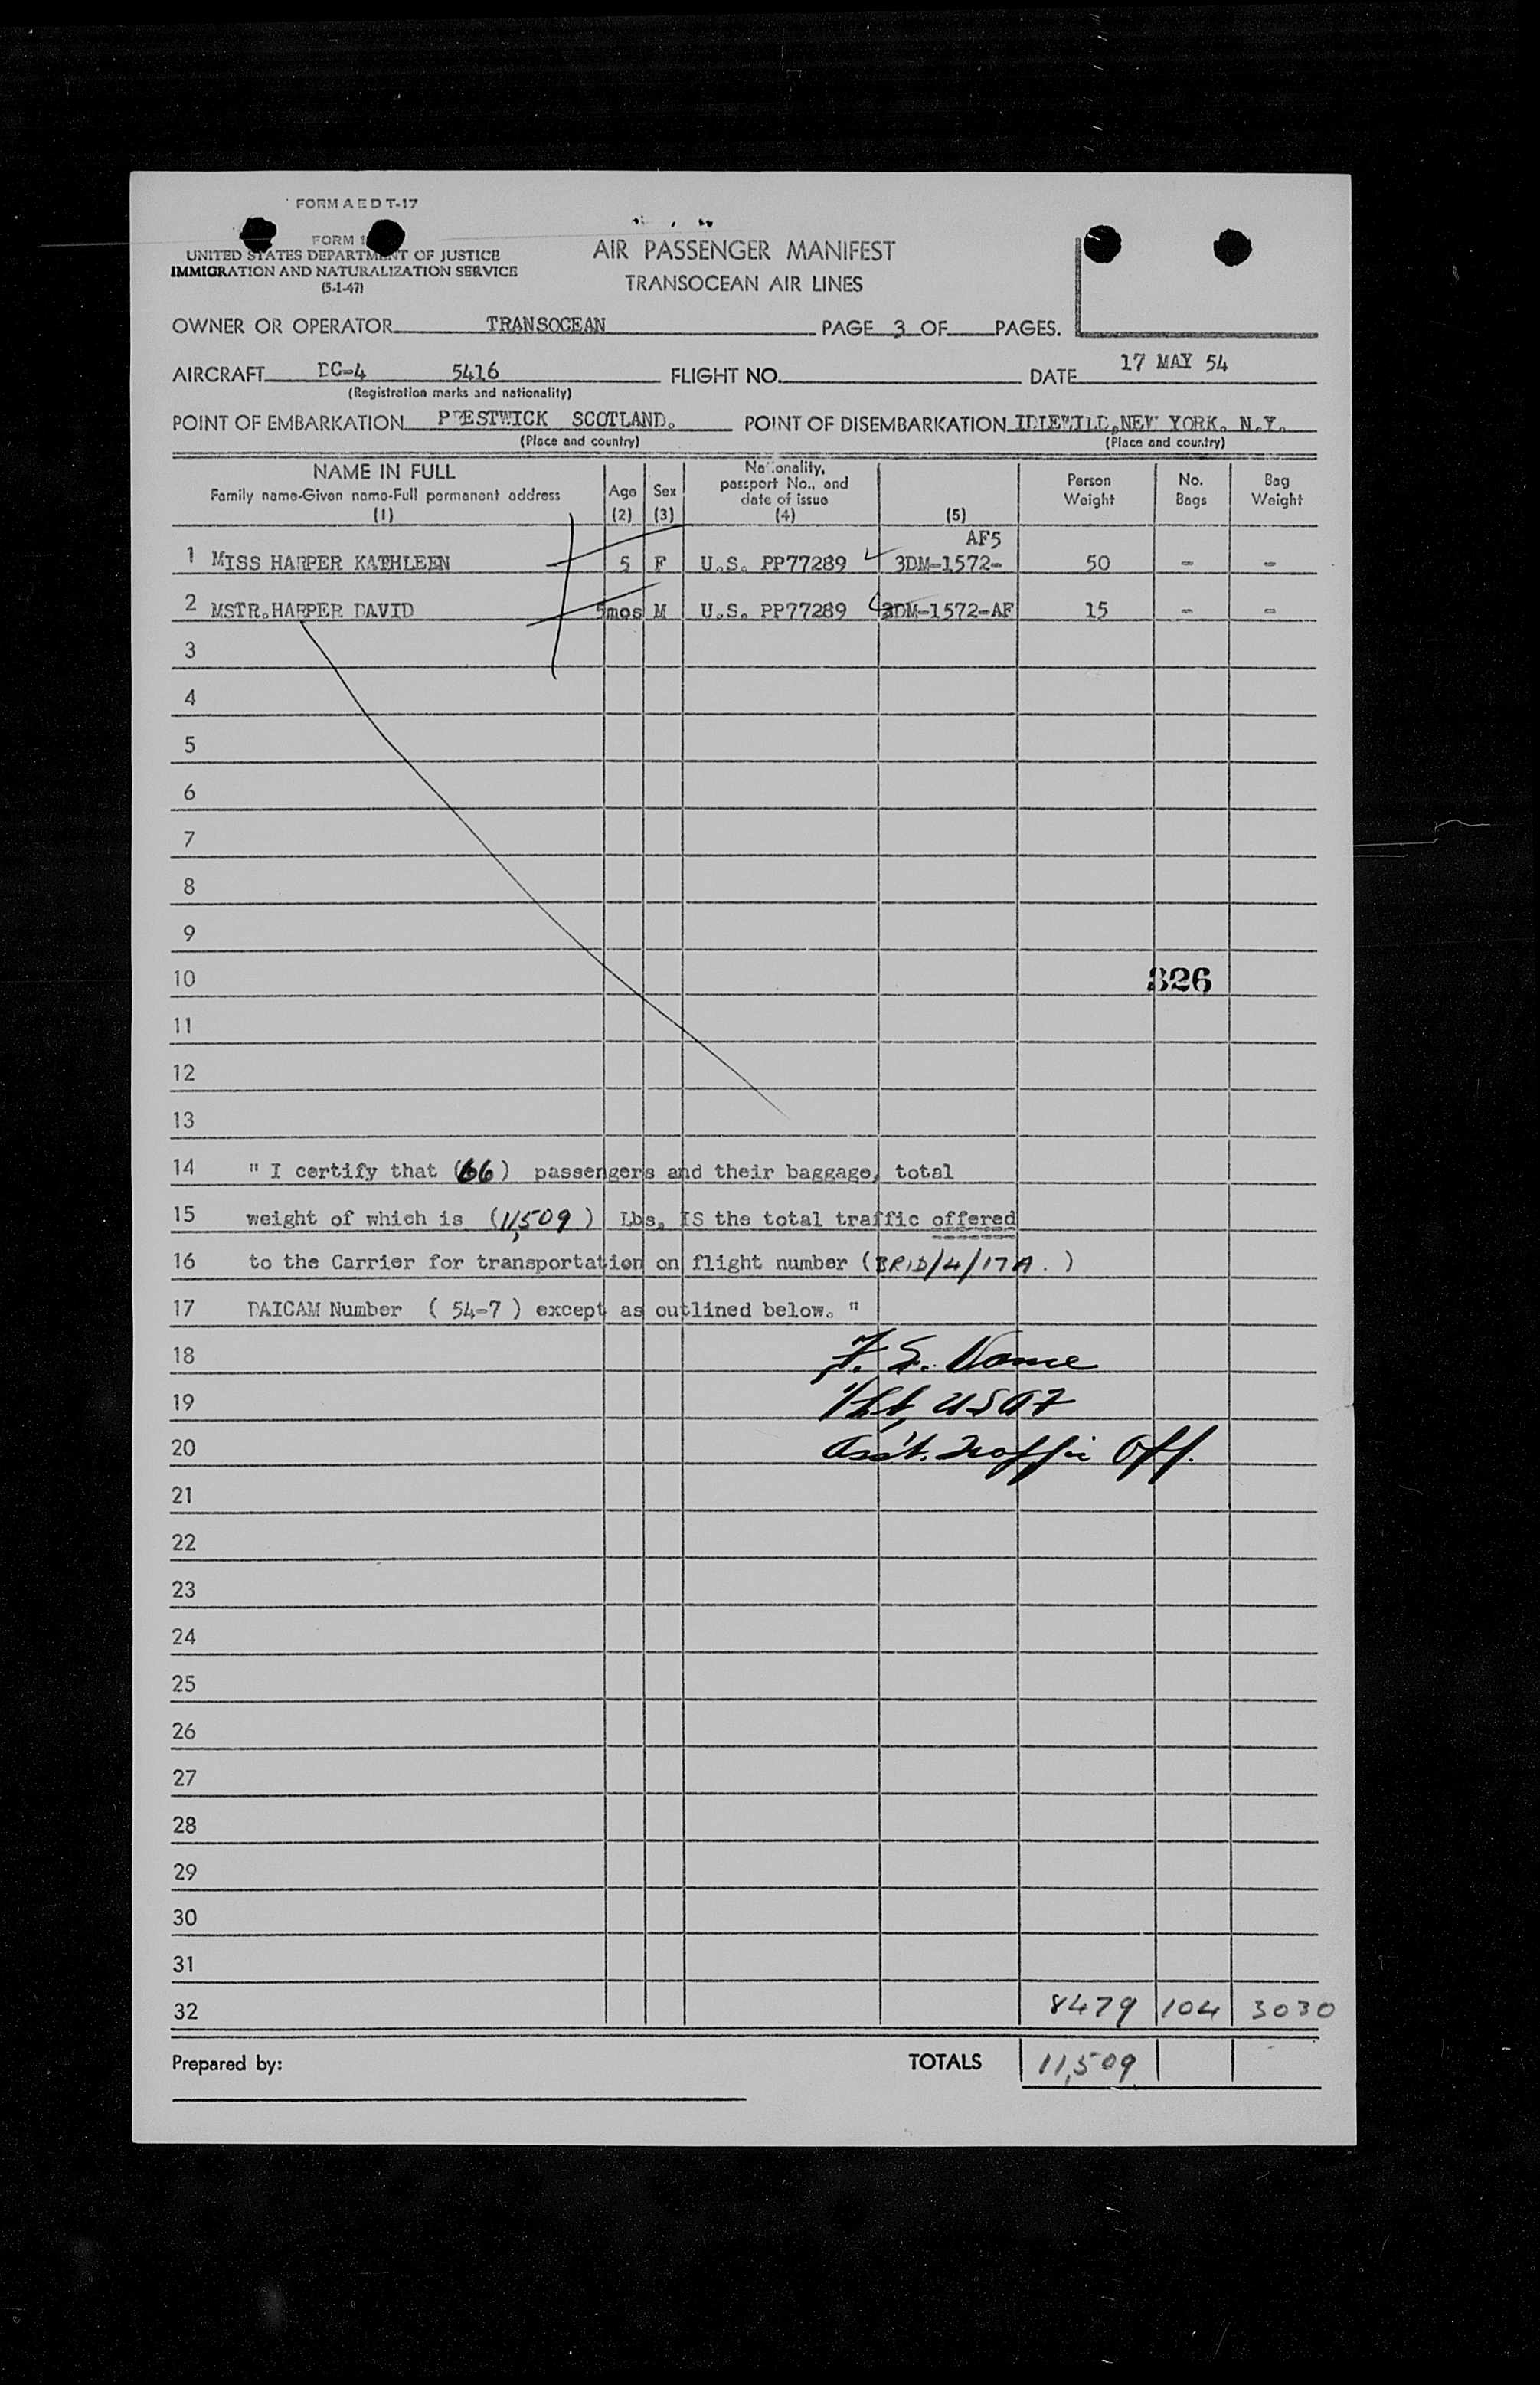 FORM A E D T-17
FORM 1
UNITED STATES DEPARTMENT OF JUSTICE
IMMIGRATION AND NATURALIZATION SERVICE
(5-1-47)
AIR PASSENGER MANIFEST
TRANSOCEAN AIR LINES
OWNER OR OPERATOR TRANSOCEAN PAGE 3 OF PAGES.
AIRCRAFT DC-4 5416 FLIGHT NO. DATE 17 MAY 54
(Registration marks and nationality)
POINT OF EMBARKATION PRESTWICK SCOTLAND. POINT OF DISEMBARKATION IDLEWILD, NEW YORK. N.Y.
(Place and country) (Place and country)
NAME IN FULL
Family name-Given name-Full permanent address
(1)
Age
(2)
Sex
(3)
Nationality,
passport No., and
date of issue
(4)
(5)
Person
Weight
No.
Bags
Bag
Weight
AF5
1 MISS HARPER KATHLEEN 5 F U.S. PP77289 3DM-1572- 50 - -
2 MSTR.HARPER DAVID 5mos M U.S. PP77289 3DM-1572-AF 15 - -
3
4
5
6
7
8
9
10 326
11
12
13
14 " I certify that (66) passengers and their baggage, total
15 weight of which is (11,509) Lbs. IS the total traffic offered
16 to the Carrier for transportation on flight number (BRID/4/17A. )
17 DAICAM Number ( 54-7 ) except as outlined below. "
18 F. S. Vance
19 1/Lt, USAF
20 Ass't. Traffic Off.
21
22
23
24
25
26
27
28
29
30
31
32 8479 104 3030
Prepared by: TOTALS 11,509